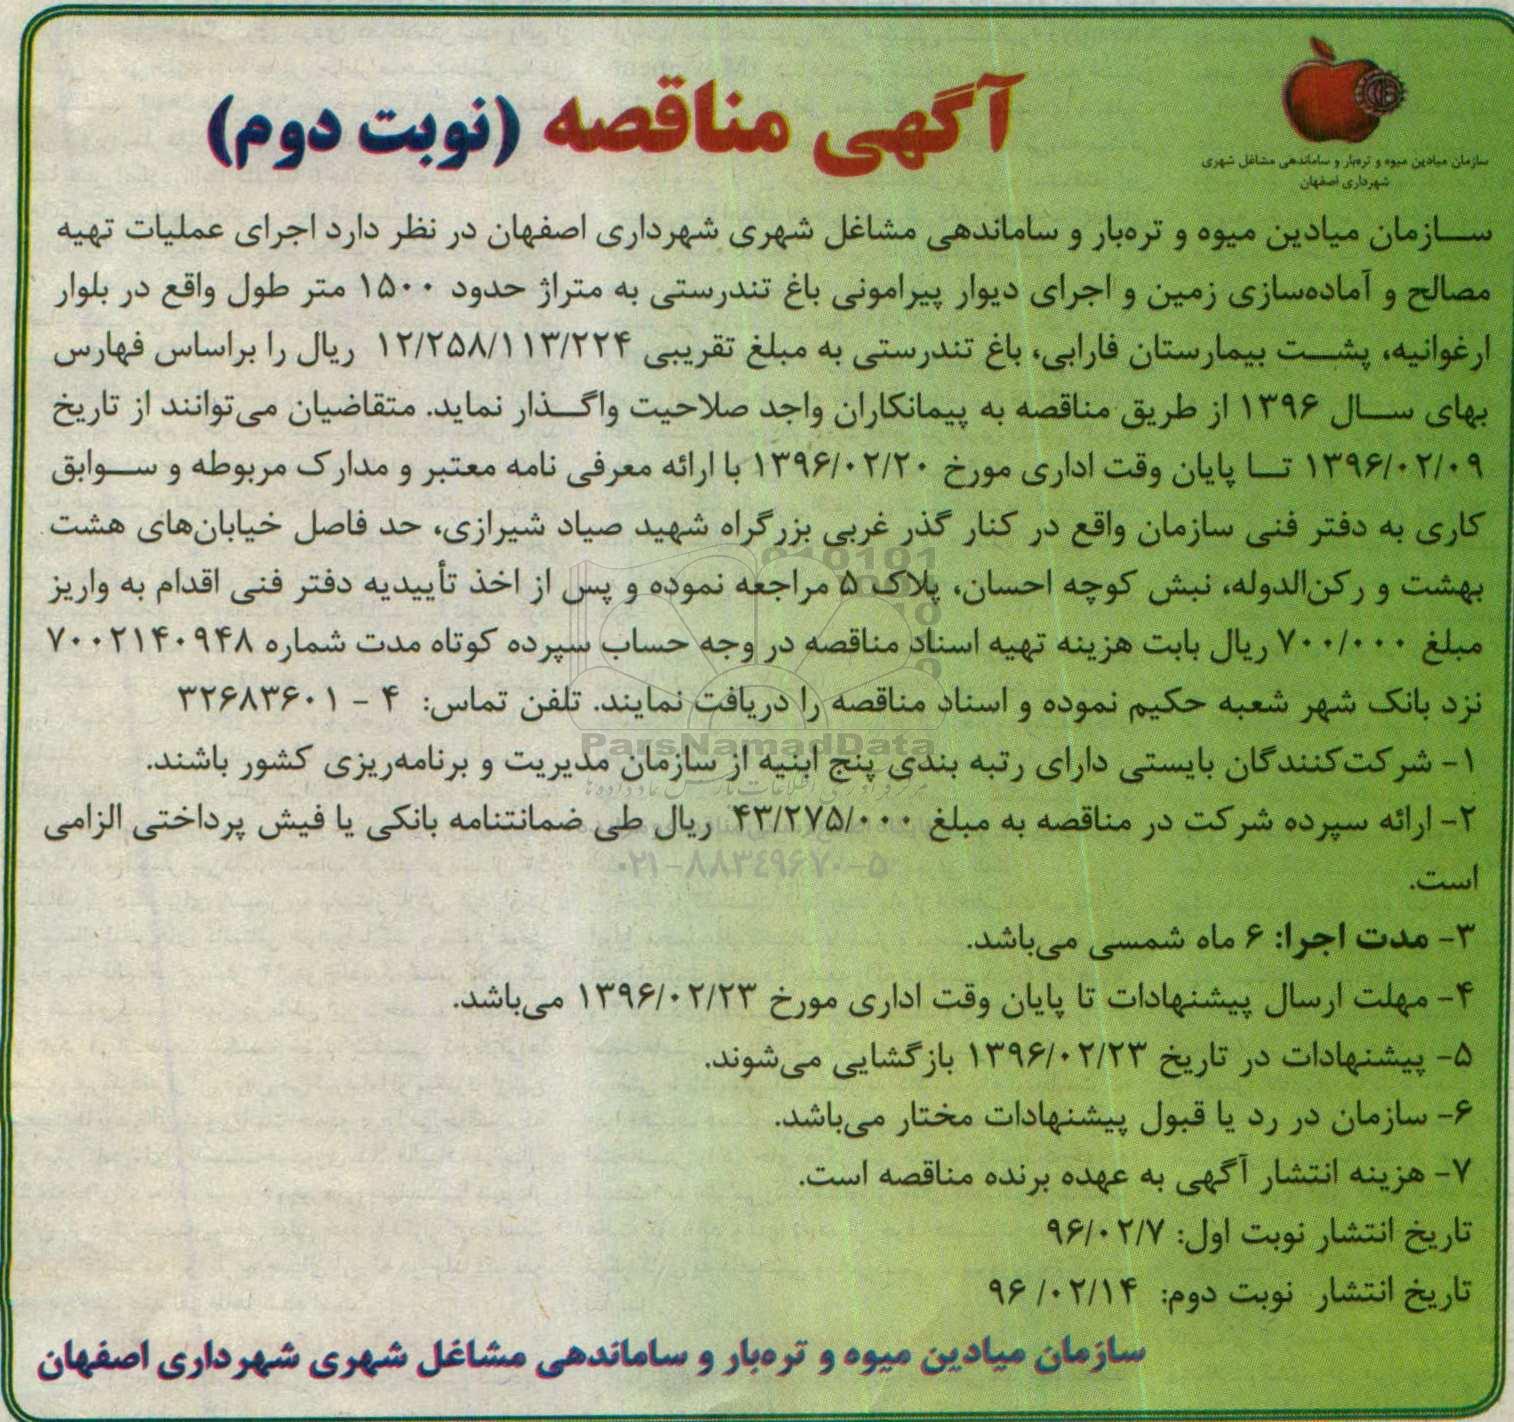 سازمان میادین میوه و تره‌بار و ساماندهی مشاغل شهری
شهرداری اصفهان
آگهی مناقصه (نوبت دوم)
ســازمان میادین میوه و تره‌بار و ساماندهی مشاغل شهری شهرداری اصفهان در نظر دارد اجرای عملیات تهیه
مصالح و آماده‌سازی زمین و اجرای دیوار پیرامونی باغ تندرستی به متراژ حدود ۱۵۰۰ متر طول واقع در بلوار
ارغوانیه، پشــت بیمارستان فارابی، باغ تندرستی به مبلغ تقریبی ۱۲/۲۵۸/۱۱۳/۲۲۴ ریال را براساس فهارس
بهای ســال ۱۳۹۶ از طریق مناقصه به پیمانکاران واجد صلاحیت واگــذار نماید. متقاضیان می‌توانند از تاریخ
۱۳۹۶/۰۲/۰۹ تــا پایان وقت اداری مورخ ۱۳۹۶/۰۲/۲۰ با ارائه معرفی نامه معتبر و مدارک مربوطه و ســوابق
کاری به دفتر فنی سازمان واقع در کنار گذر غربی بزرگراه شهید صیاد شیرازی، حد فاصل خیابان‌های هشت
بهشت و رکن‌الدوله، نبش کوچه احسان، پلاک ۵ مراجعه نموده و پس از اخذ تأییدیه دفتر فنی اقدام به واریز
مبلغ ۷۰۰/۰۰۰ ریال بابت هزینه تهیه اسناد مناقصه در وجه حساب سپرده کوتاه مدت شماره ۷۰۰۲۱۴۰۹۴۸
نزد بانک شهر شعبه حکیم نموده و اسناد مناقصه را دریافت نمایند. تلفن تماس: ۴ - ۳۲۶۸۳۶۰۱
ParsNamadData
۱- شرکت‌کنندگان بایستی دارای رتبه بندی پنج ابنیه از سازمان مدیریت و برنامه‌ریزی کشور باشند.
۲- ارائه سپرده شرکت در مناقصه به مبلغ ۴۳/۲۷۵/۰۰۰ ریال طی ضمانتنامه بانکی یا فیش پرداختی الزامی
۰۲۱-۸۸۳٤۹۶۷۰-۵
است.
۳- مدت اجرا: ۶ ماه شمسی می‌باشد.
۴- مهلت ارسال پیشنهادات تا پایان وقت اداری مورخ ۱۳۹۶/۰۲/۲۳ می‌باشد.
۵- پیشنهادات در تاریخ ۱۳۹۶/۰۲/۲۳ بازگشایی می‌شوند.
۶- سازمان در رد یا قبول پیشنهادات مختار می‌باشد.
۷- هزینه انتشار آگهی به عهده برنده مناقصه است.
تاریخ انتشار نوبت اول: ۹۶/۰۲/۷
تاریخ انتشار نوبت دوم: ۹۶ /۰۲/۱۴
سازمان میادین میوه و تره‌بار و ساماندهی مشاغل شهری شهرداری اصفهان